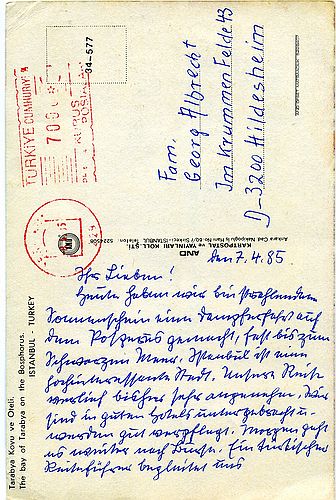 TÜRKİYE CUMHURİYETİ
34-577
Fam.
Georg Albrecht
Im Krummen Felde 43
D-3200 Hildesheim
AND
KARTPOSTAL
ve YAYINLARI KOLL. ŞTİ.
den 7.4.85.
Ihr Lieben!
Heute haben wir bei strahlendem
Sonnenschein eine Dampferfahrt auf
dem Bosporus gemacht, fast bis zum
Schwarzen Meer. Istanbul ist eine
hochinteressante Stadt. Unsere Reise
verlief bisher sehr angenehm. Wir
sind in guten Hotels untergebracht u.
werden gut verpflegt. Morgen geht
es weiter nach Bursa. Ein türkischer
Reiseführer begleitet uns
Tarabya Koyu ve Oteli.
The bay of Tarabya on the Bosphorus.
ISTANBUL - TURKEY